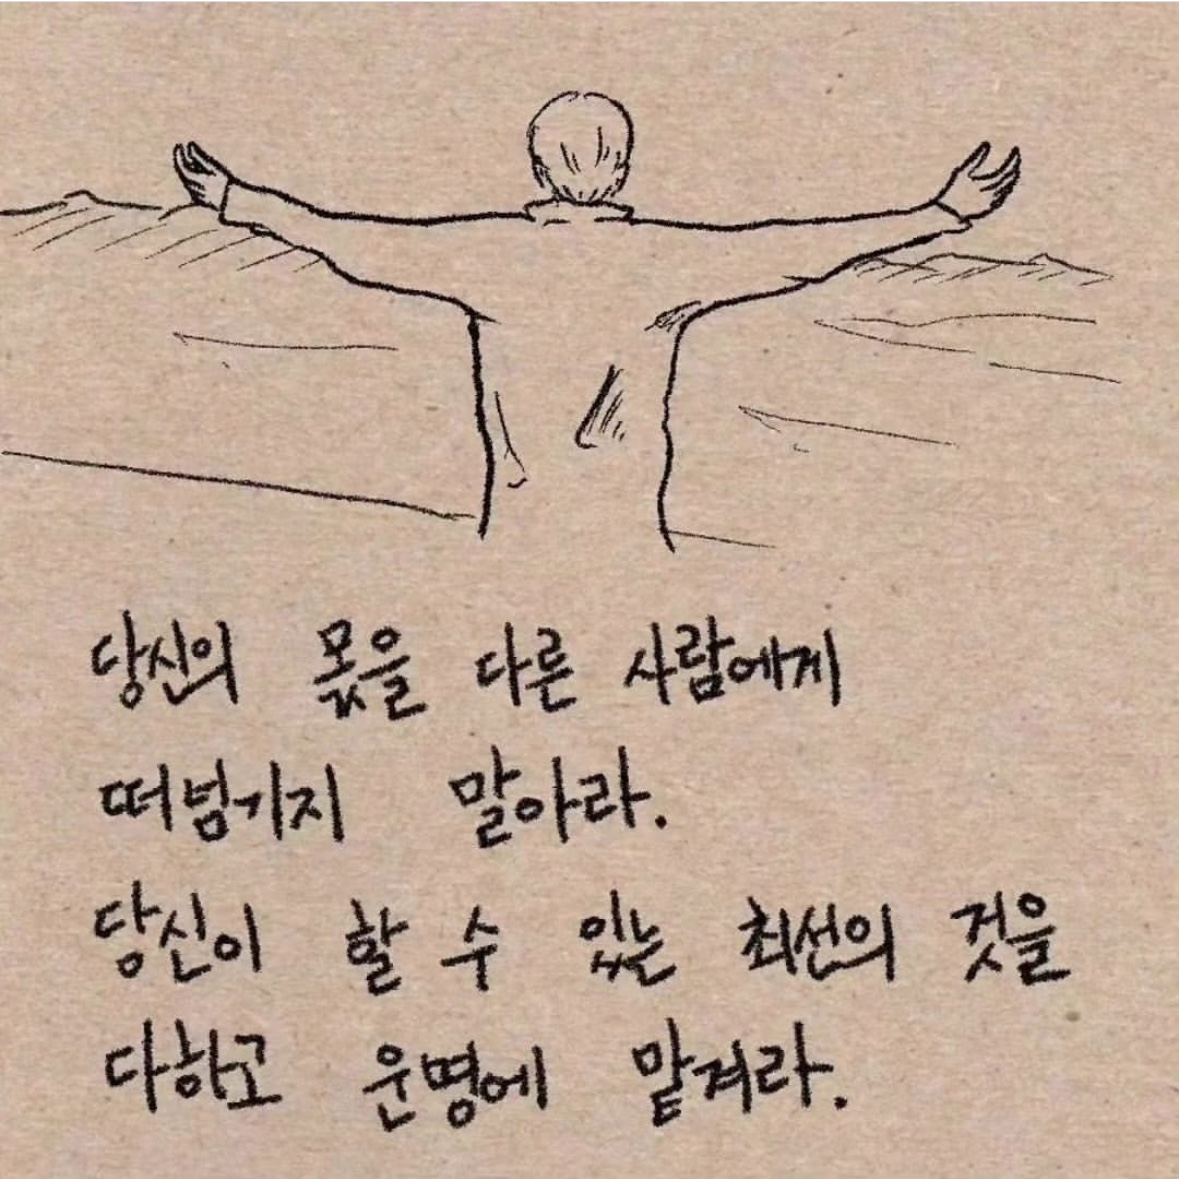 당신의 몫을 다른 사람에게
떠넘기지 말아라.
당신이 할 수 있는 최선의 것을
다하고 운명에 맡겨라.